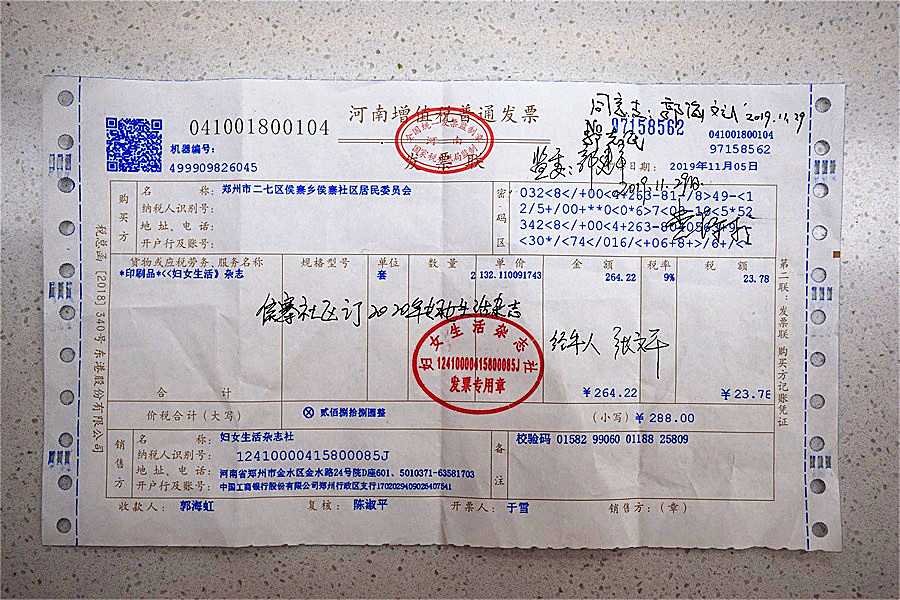 河南增值税普通发票
发票联
041001800104
机器编号:
499909826045
№ 97158562
041001800104
97158562
2019年11月05日
2019.11.29
2019.11.29日
全国统一发票监制章
河南
购买方
名　　称: 郑州市二七区侯寨乡侯寨社区居民委员会
纳税人识别号:
地址、电话:
开户行及账号:
密码区
货物或应税劳务、服务名称 规格型号 单位 数量 单价 金额 税率 税额
*印刷品*<<妇女生活》杂志 套 2 132.110091743 264.22 9% 23.78
侯寨社区订2020年妇女生活杂志
经手人 张文平
妇女生活杂志社
12410000415800085J
发票专用章
合　　计 ￥264.22 ￥23.78
价税合计（大写） ⊗ 贰佰捌拾捌圆整 (小写) ￥288.00
销售方
名　　称: 妇女生活杂志社
纳税人识别号: 12410000415800085J
地址、电话: 河南省郑州市金水区金水路24号院D座601、5010371-63581703
开户行及账号: 中国工商银行股份有限公司郑州行政区支行1702029409026407541
备注
校验码 01582 99060 01188 25809
收款人: 郭海虹 复核: 陈淑平 开票人: 于雪 销售方:（章）
第二联:发票联 购买方记账凭证
税总函 [2018] 340号 东港股份有限公司